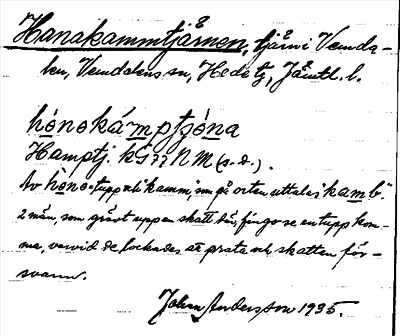 Hanakammtjärnen, tjärn i Vemda-
len, Vemdalens sn, Hede tg, Jämtl. l.
hònokámptjóna
Hamptj. k1:22 N M (s.d.).
Av hòno = tupp och "kamm", som på orten uttalas "kamb".
2 män, som grävt upp en skatt där, fingo se en tupp kom-
ma, varvid de lockades at prata och skatten för-
svann.
John Andersson 1935.